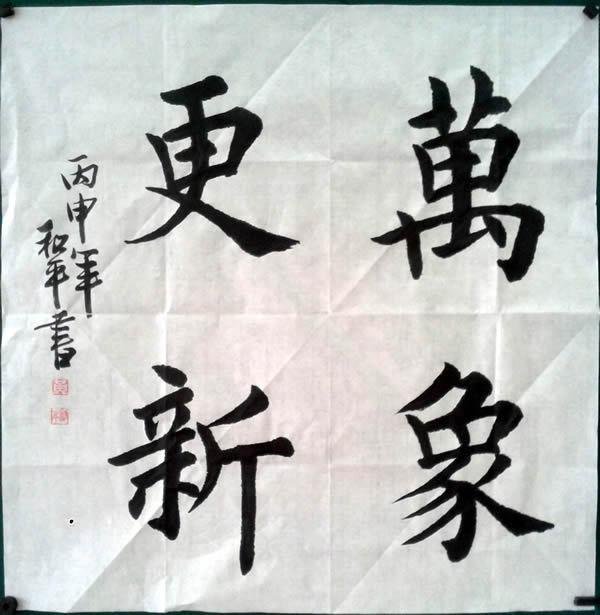 萬象
更新
丙申年
和平書